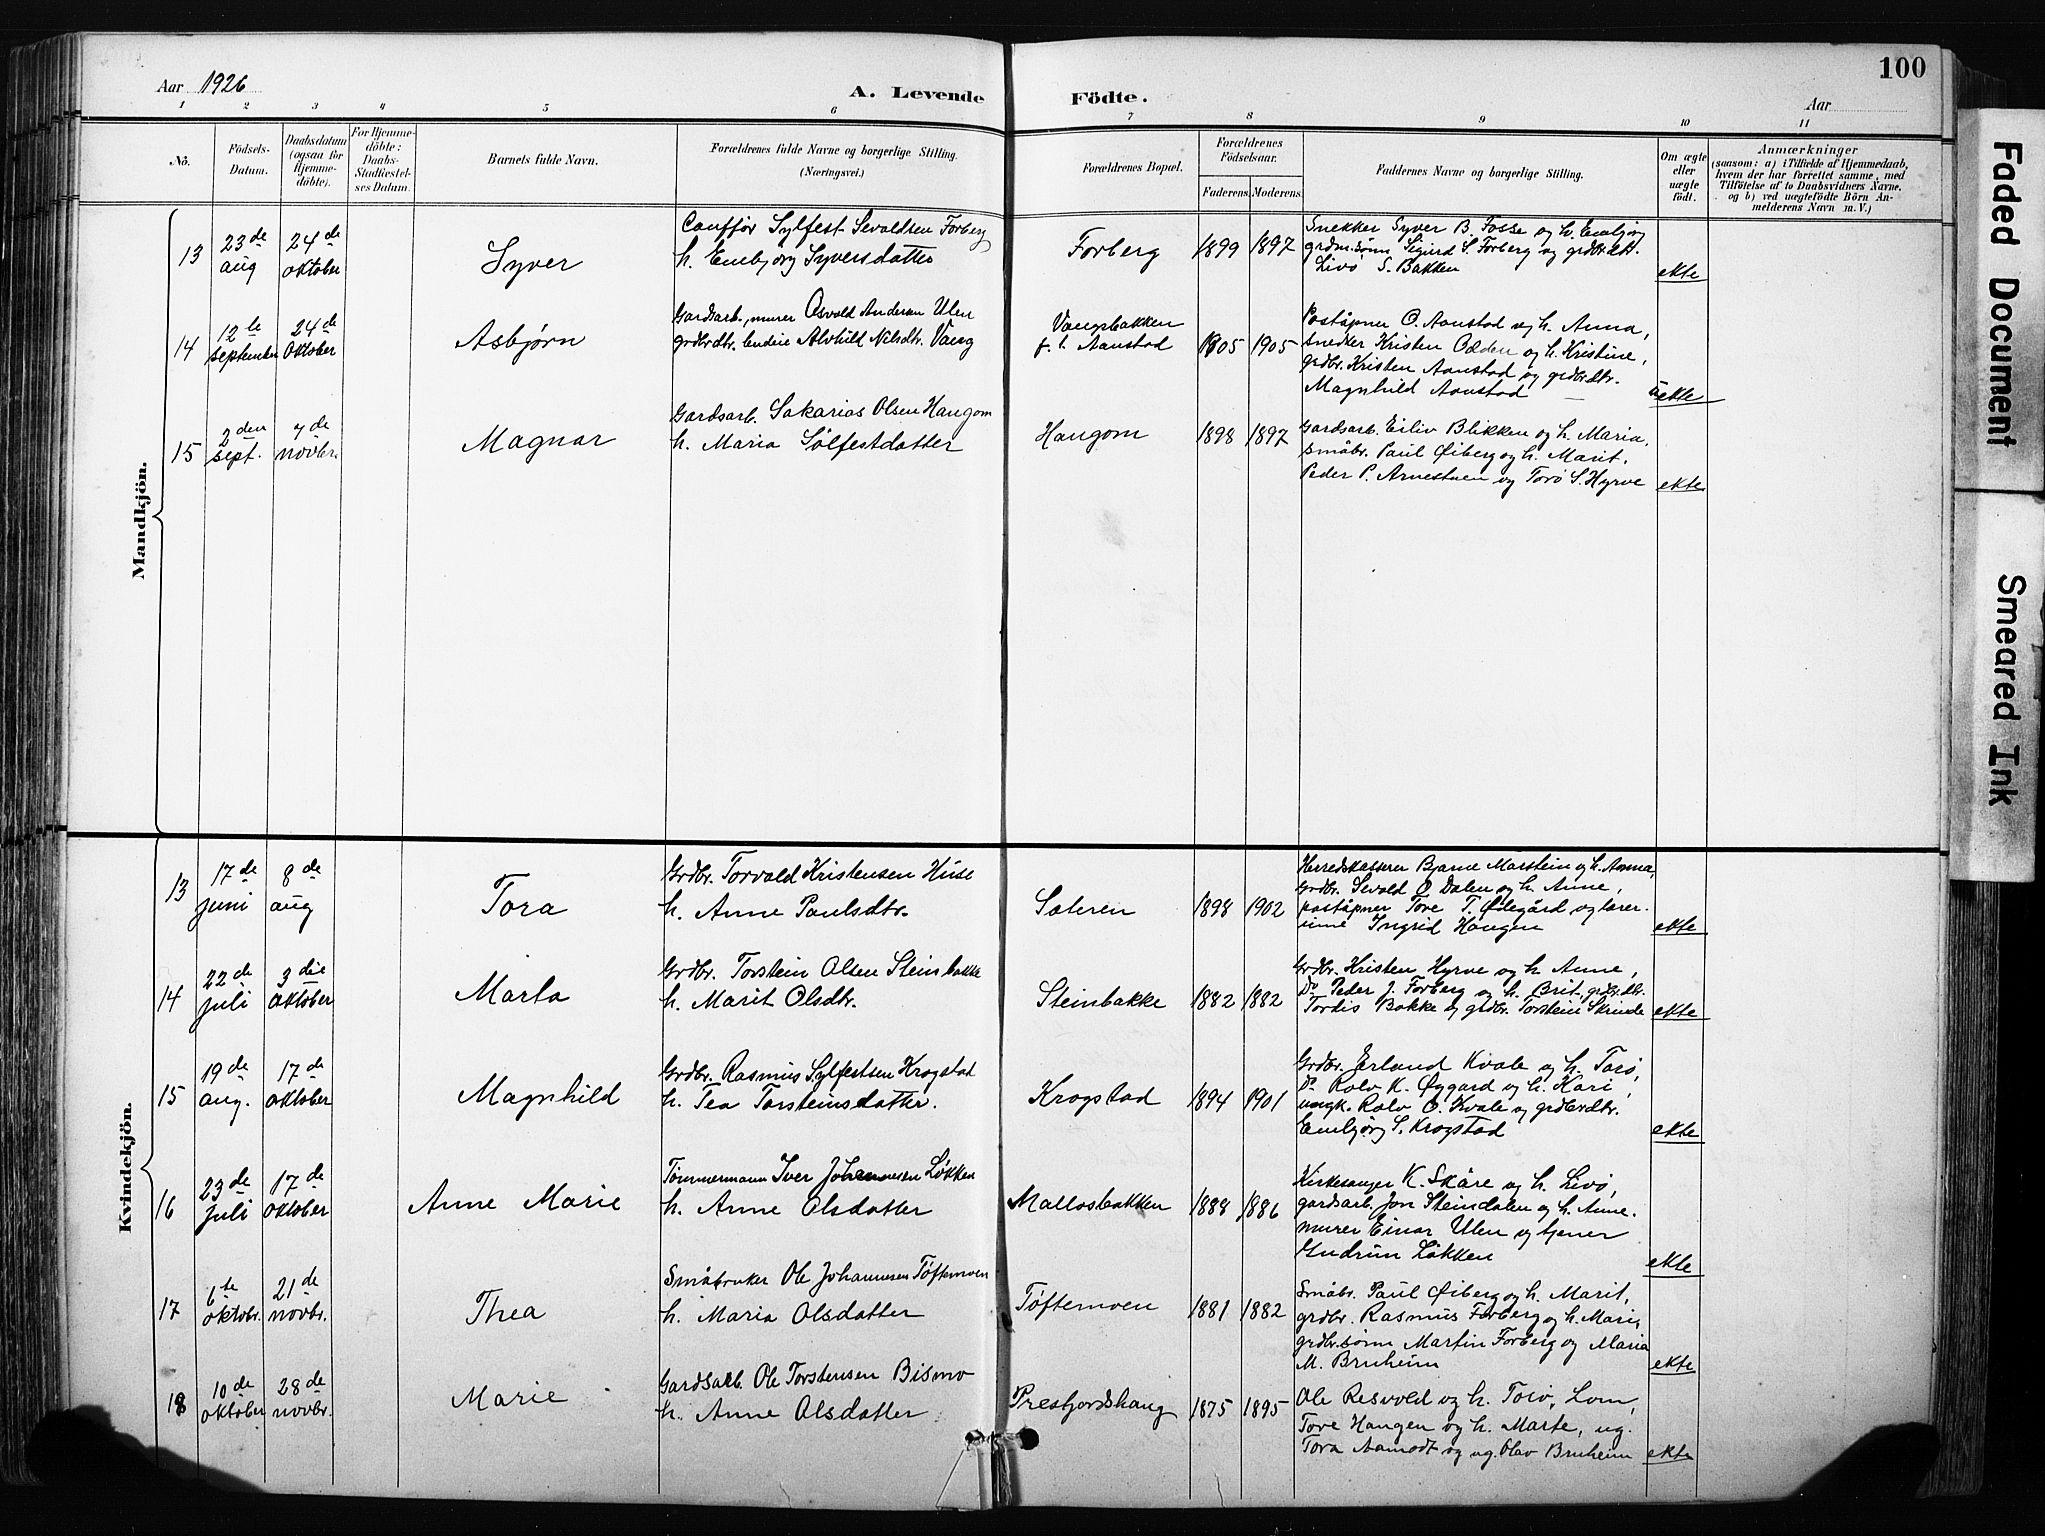 Aar 1926
A. Levende Födte.
100
Aar
1 2 3 4 5 6 7 8 9 10 11
No.
Födsels-Datum.
Daabsdatum (ogsaa for Hjemme-döbte).
For Hjemme-döbte: Daabs-Stadfæstel-ses Datum.
Barnets fulde Navn.
Forældrenes fulde Navne og borgerlige Stilling. (Næringsvei.)
Forældrenes Bopæl.
Forældrenes Födselsaar.
Faderens. Moderens.
Faddernes Navne og borgerlige Stilling.
Om ægte eller uægte födt.
Anmærkninger
(saasom: a) i Tilfælde af Hjemmedaab,
hvem der har forrettet samme, med
Tilföielse af to Daabsvidners Navne.
og b) ved uægtefödte Börn An-
melderens Navn m. V.)
Mandkjön.
13 23de aug 24de oktober Syver
Cauffør Sylfest Sevaldsen Forberg
h. Embjørg Syversdatter
Forberg 1899 1897
Snekker Syver B. Fosse og h. Embjørg
grdm.sønn Sigurd S. Forberg og grdbr.dtr.
Livø S. Bakken
ekte
14 12te september 24de oktober Asbjørn
Gardsarb., murer Osvald Andersen Ulen
grdbrdtr. Alvhild Nilsdtr. Vang
Vangsbakken
f. l. Aanstad
1905 1905
Poståpner O. Aanstad og h. Anna,
snedker Kristen Odden og h. Kristine,
grdbr. Kristen Aanstad og grdbrdtr.
Magnhild Aanstad
uekte
15 2den sept. 7de novbr. Magnar
Gardsarb. Sakarias Olsen Haugom
h. Maria Sølfestdatter
Haugom 1898 1897
Gardsarb. Eiliv Blikken og h. Maria,
småbr. Paul Øiberg og h. Marit.
Peder P. Arnestuen og Torø S. Hyrve
ekte
Kvindekjön.
13 17de juni 8de aug Tora
Grdbr. Torvald Kristensen Huse
h. Anne Paulsdtr.
Sateren 1898 1902
Herredskasserer Bjarne Marstein og h. Anna,
Grdbr. Sevald O. Dalen og h. Anne,
poståpner Tore T. Ødegård og lærer-
inne Ingrid Haugen
ekte
14 22de juli 3die oktober Marta
Grdbr. Torstein Olsen Steinbakke
h. Marit Olsdtr.
Steinbakke 1882 1882
Grdbr. Kristen Hyrve og h. Anne,
Do Peder J. Forberg og h. Brit, grdbr.dtr.
Tordis Bakke og grdbr. Torstein Skrinde
ekte
15 19de aug. 17de oktober Magnhild
Grdbr. Rasmus Sylfestsen Krogstad
h. Tea Torsteinsdatter.
Krogstad 1894 1901
Grdbr. Erland Kvale og h. Torø,
Do Rolv K. Øygard og h. Kari
ungk. Rolv O. Kvale og grdbrdtr.
Embjørg S. Krogstad
ekte
16 23de juli 17de oktober Anne Marie
Tømmermann Iver Johannesen Løkken
h. Anne Olsdatter
Mallosbakken 1888 1886
Kirkesanger K. Skåre og h. Livø,
gardsarb. Jon Steindalen og h. Anne.
murer Einar Ulen og tjener
Gudrun Løkken
ekte
17 6te oktobr. 21de novbr. Thea
Småbruker Ole Johannesen Tøftemoen
h. Maria Olsdatter
Tøftemoen 1881 1882
Småbr. Paul Øiberg og h. Marit,
grdbr. Rasmus Forberg og h. Mari,
grdbr.sønn Martin Forberg og Maria
M. Bruheim
ekte
18 10de oktober 28de novbr. Marie
Gardsarb. Ole Torstensen Bismo
h. Anne Olsdatter
Presfjordshaug 1875 1895
Ole Resvold og h. Torø, Lom,
Tore Haugen og h. Marte, ug.
Tora Aamodt og ug. Olav Bruheim
ekte
Faded Document
Smeared Ink